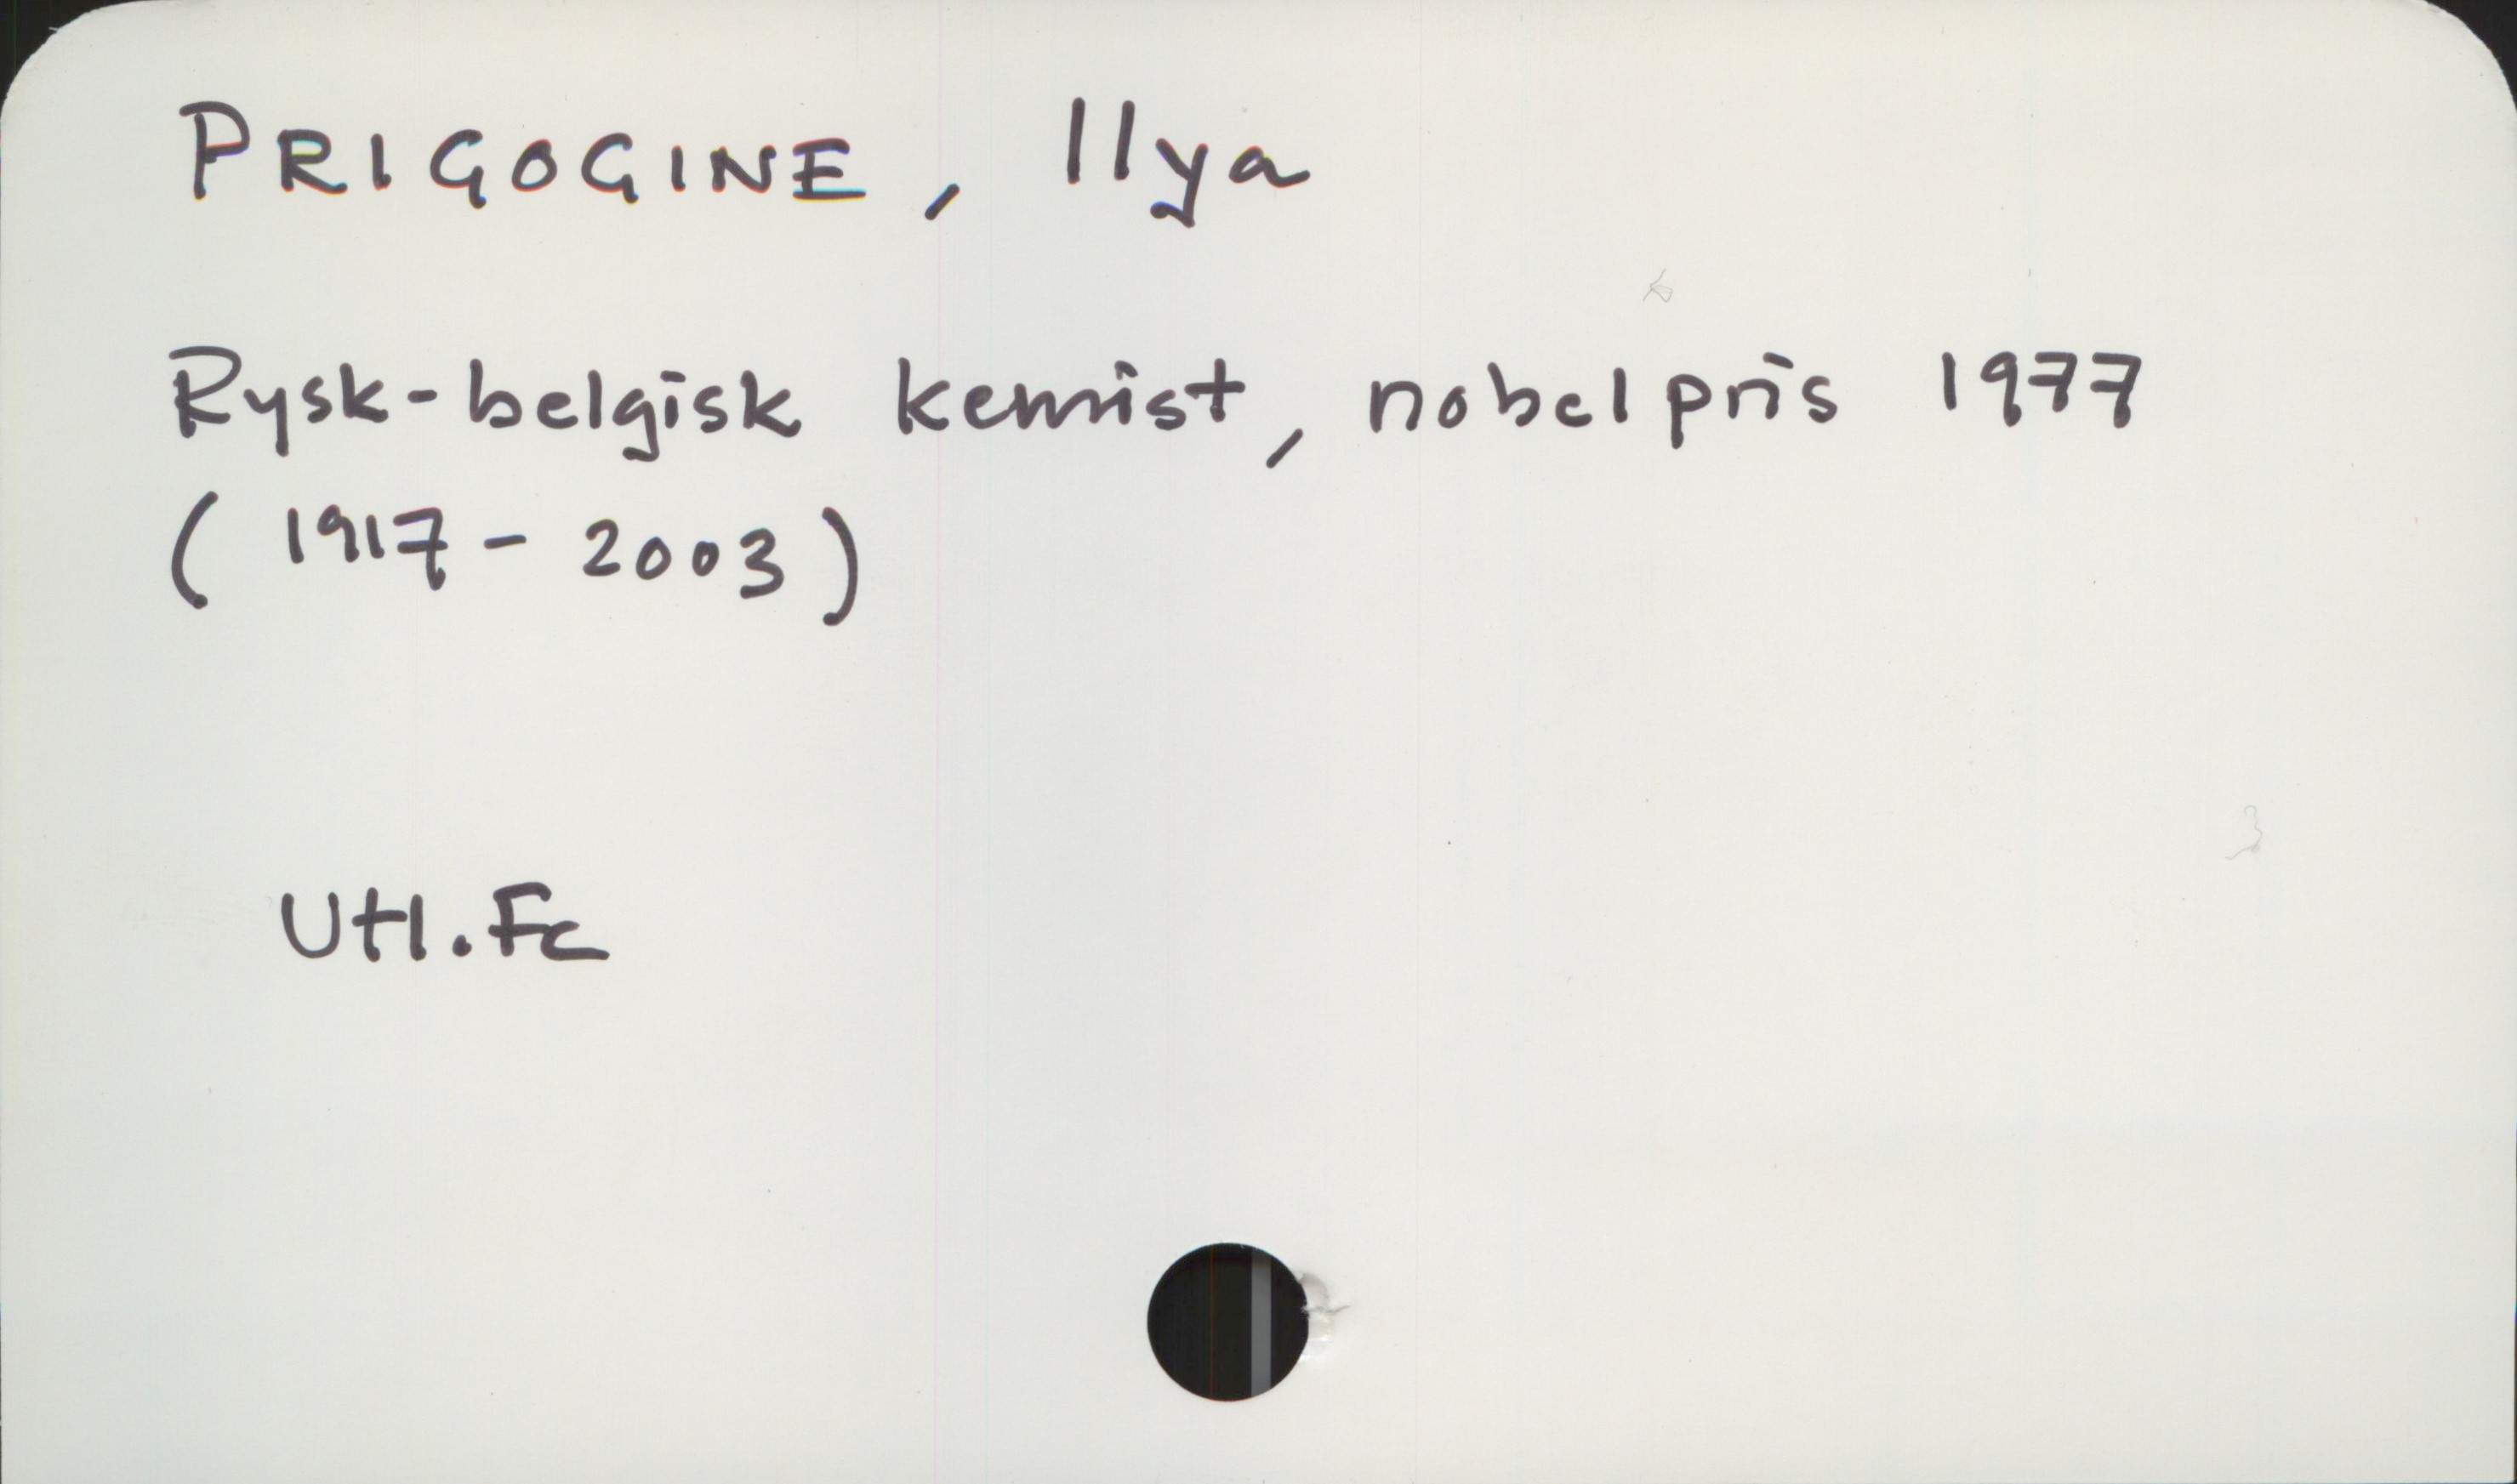 PRIGOGINE, Ilya
Rysk-belgisk kemist, nobelpris 1977
(1917 - 2003)
Utl. Fc